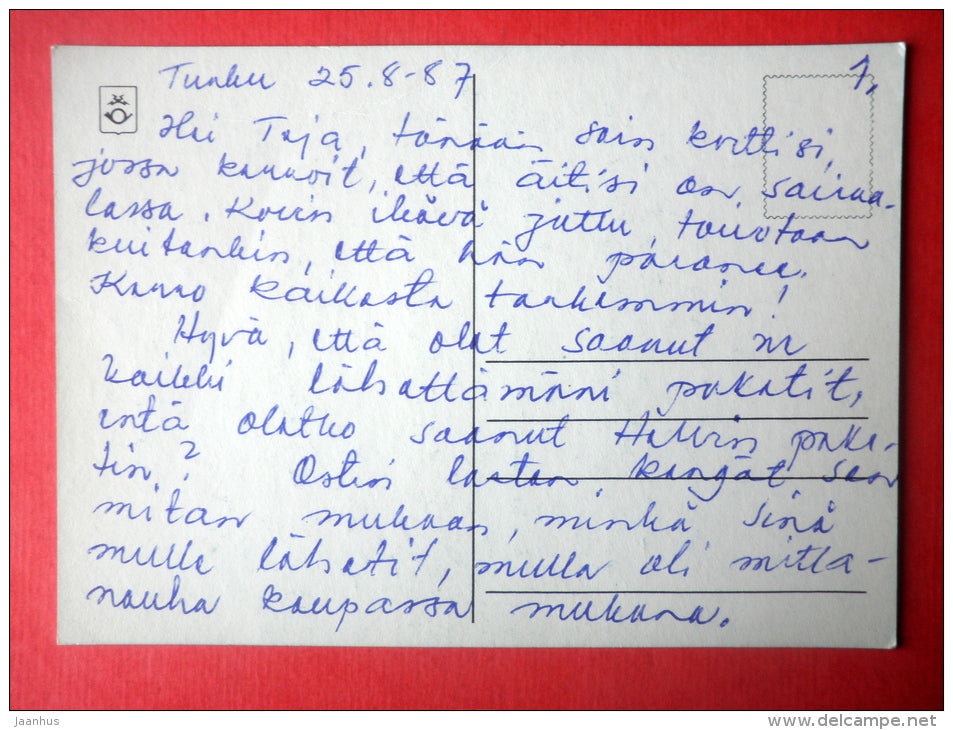 Turku 25.8-87
1.
Hei Taja, tänään sain korttisi,
jossa kerroit, että äitisi on sairaa-
lassa. Kovin ikävä juttu, toivotaan
kuitenkin, että hän paranee.
Kerro kaikesta tarkemmin!
Hyvä, että olet saanut ne
kaikki lähettämäni paketit,
entä oletko saanut Helvin pake-
tin? Ostin lasten kengät sen
mitan mukaan, minkä sinä
mulle lähetit, mulla oli mitta-
nauha kaupassa mukana.
Jaanhus
www.delcampe.net